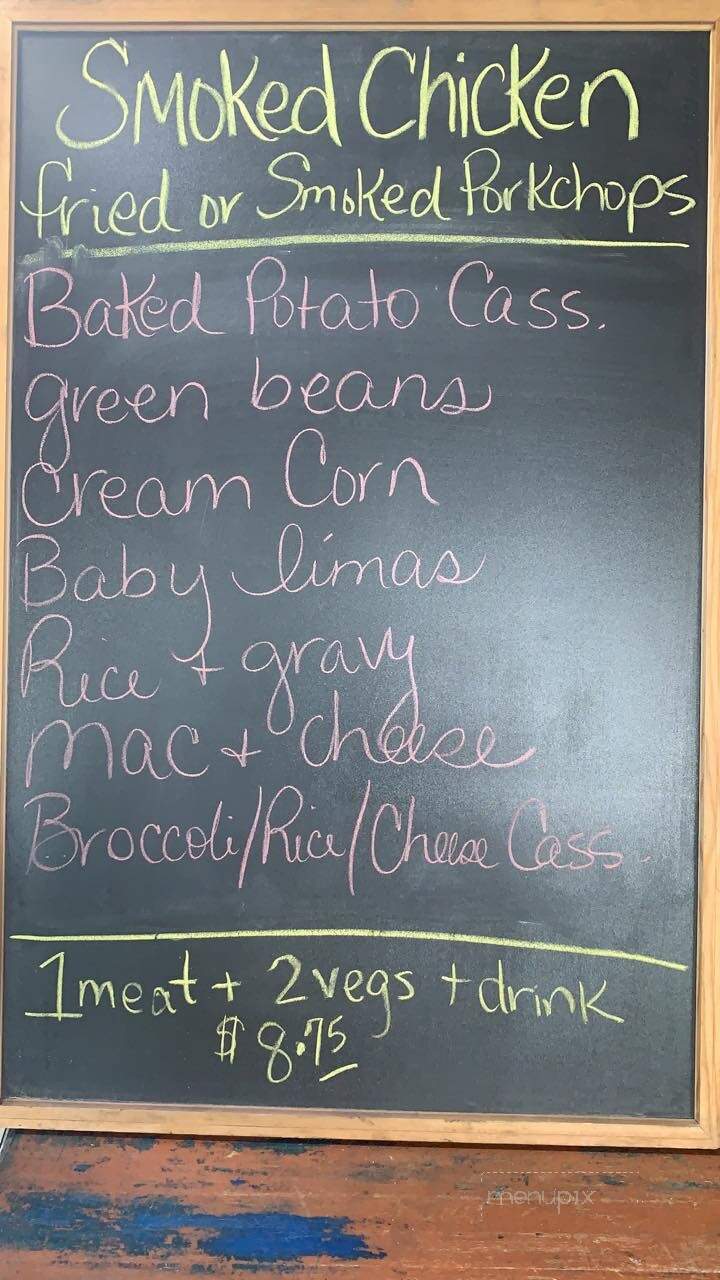 Smoked Chicken
fried or Smoked Porkchops
Baked Potato Cass.
green beans
Cream Corn
Baby limas
Rice + gravy
Mac + cheese
Broccoli/Rice/Cheese Cass.
1 meat + 2 vegs + drink
$ 8.75
menupix